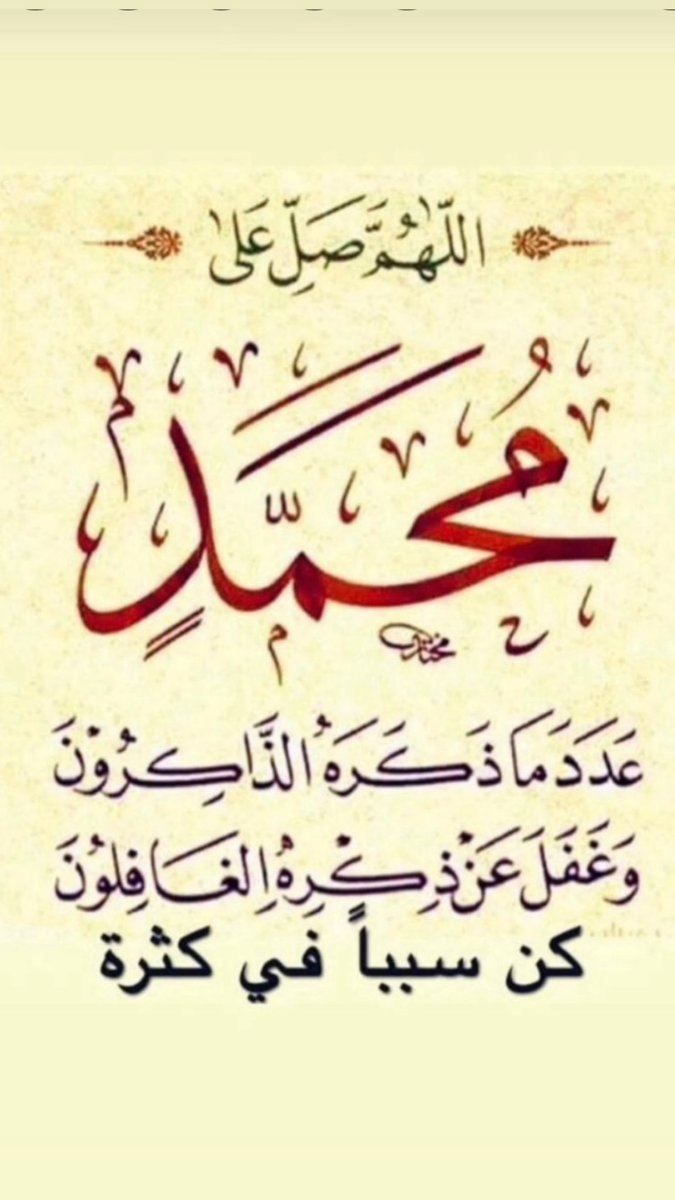 اللّٰهُمَّ صَلِّ عَلىٰ
مُحَمَّدٍ
عَدَدَ مَا ذَكَرَهُ الذَّاكِرُوْنَ
وَغَفَلَ عَنْ ذِكْرِهِ الغَافِلُوْنَ
كن سبباً في كثرة